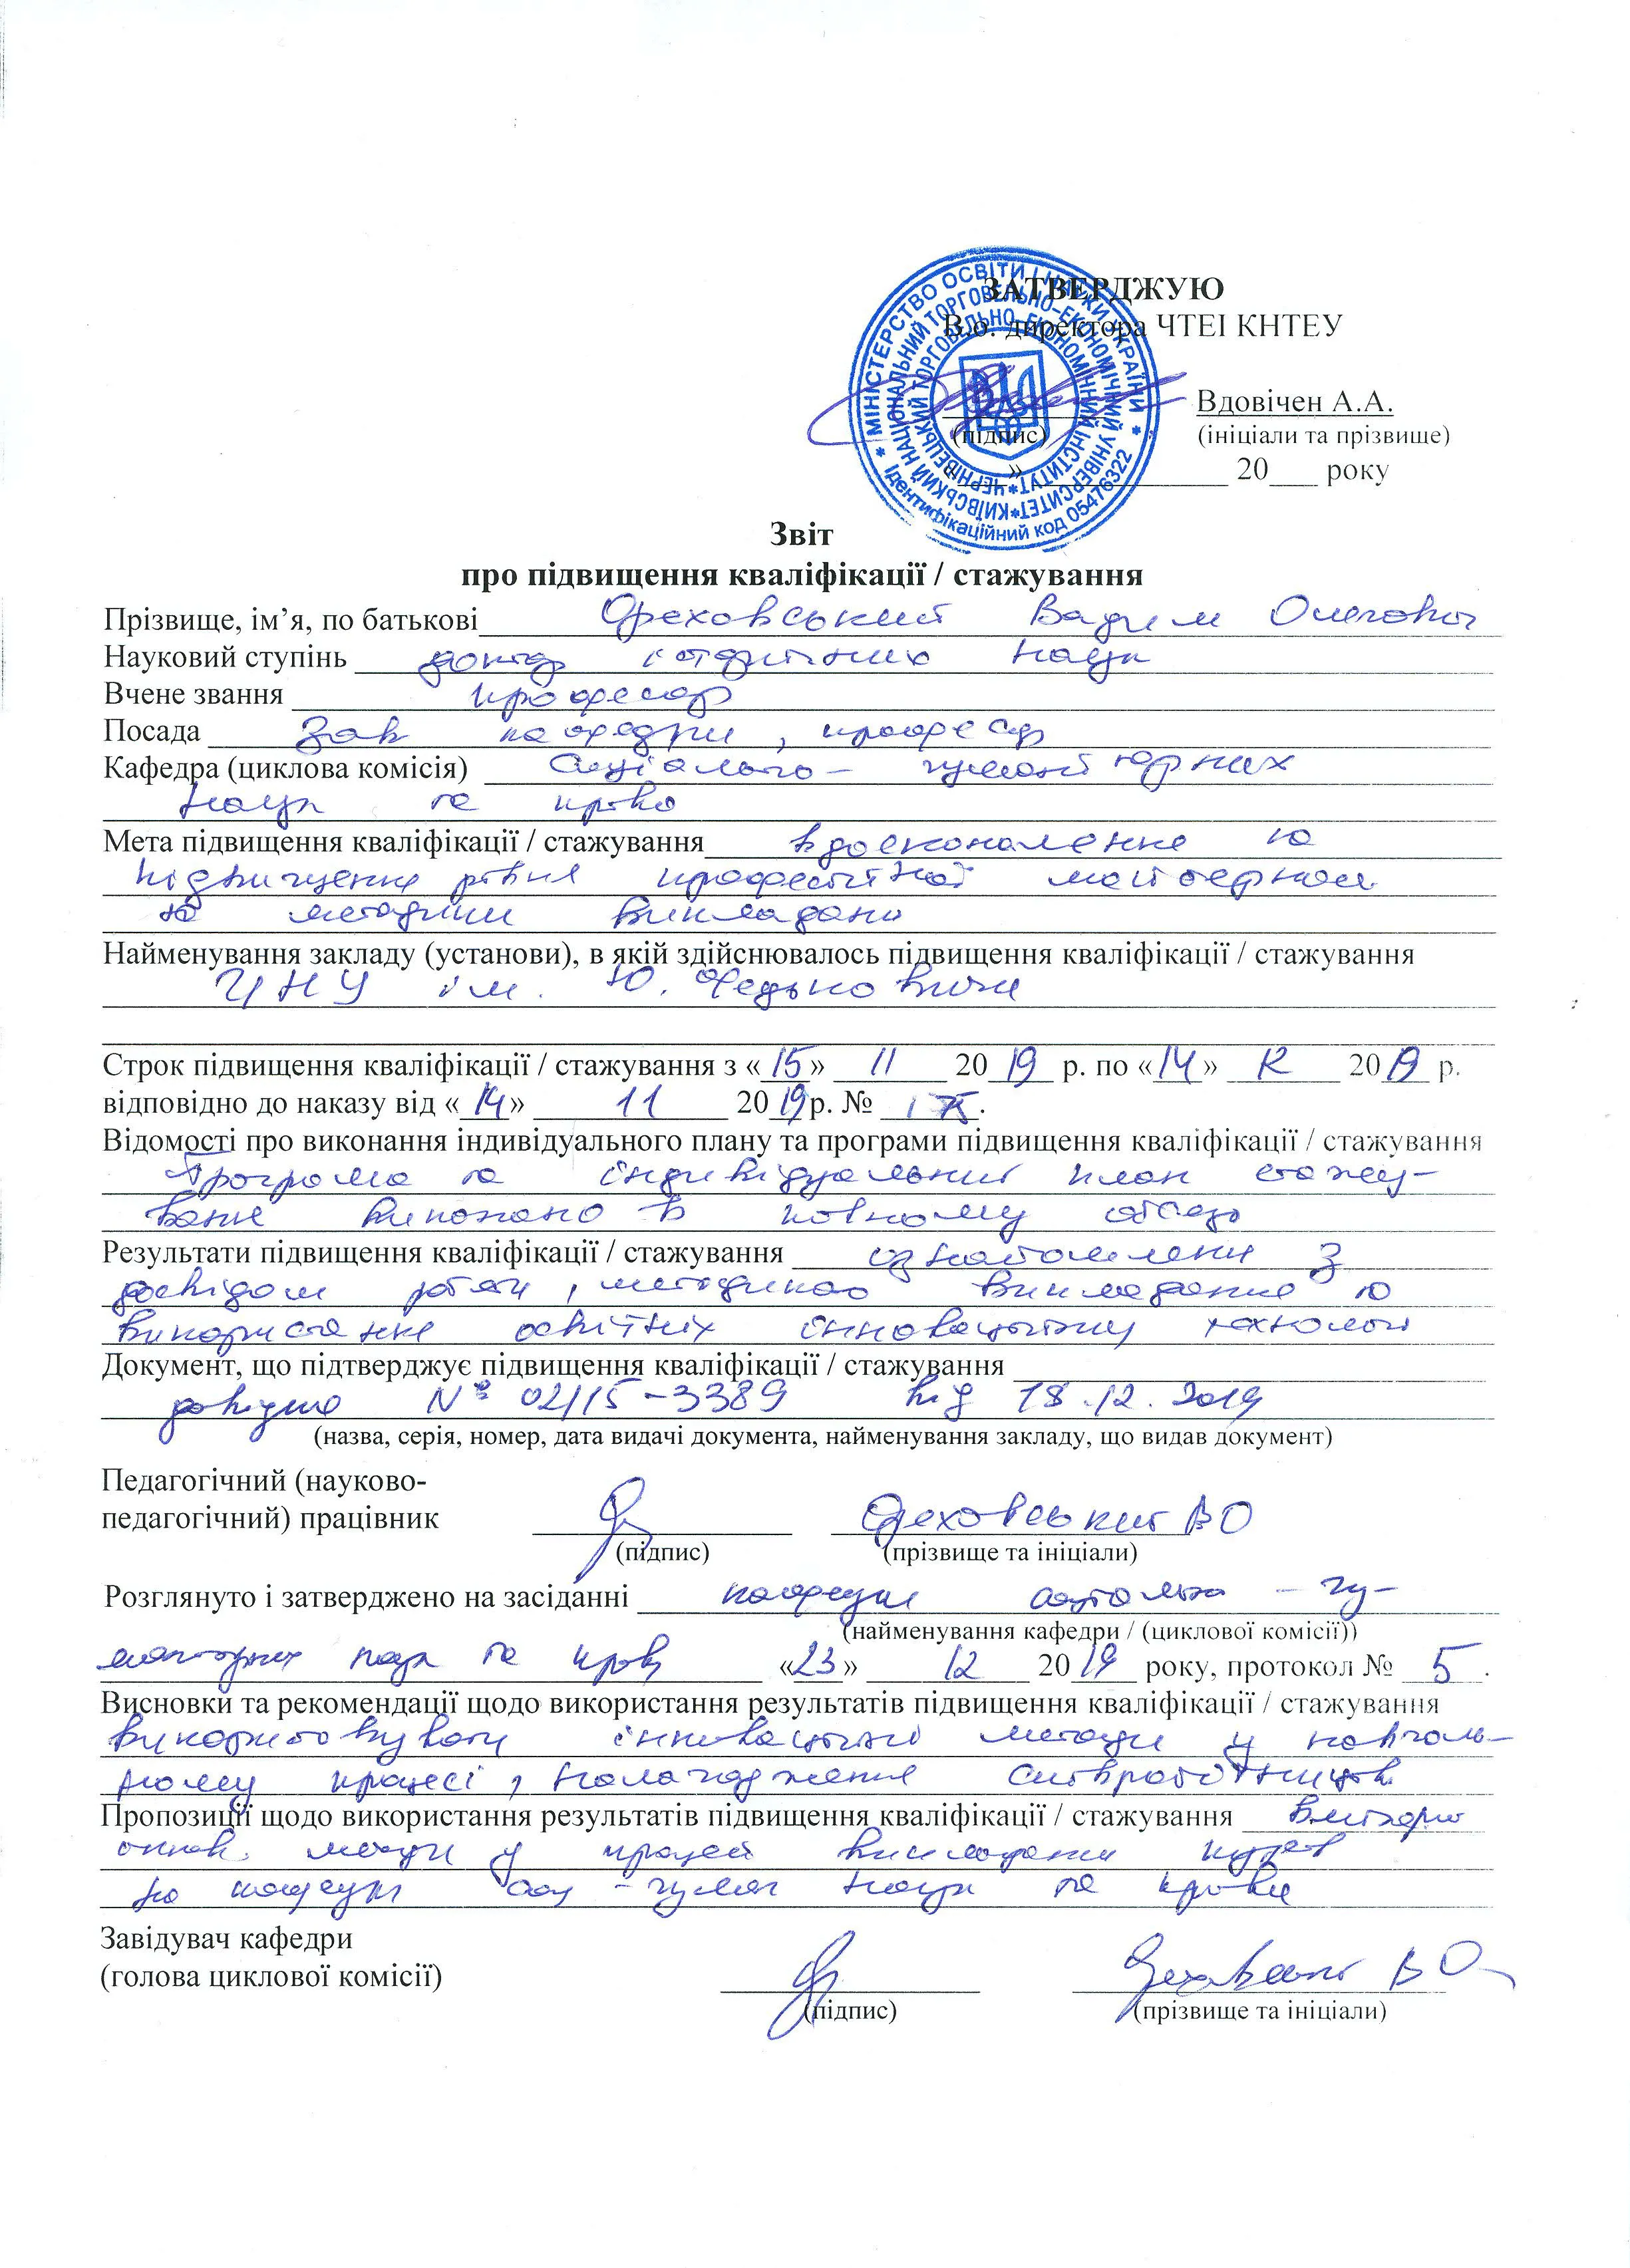 ЗАТВЕРДЖУЮ
В.о. директора ЧТЕІ КНТЕУ
МІНІСТЕРСТВО ОСВІТИ І НАУКИ УКРАЇНИ
КИЇВСЬКИЙ НАЦІОНАЛЬНИЙ ТОРГОВЕЛЬНО-ЕКОНОМІЧНИЙ УНІВЕРСИТЕТ
ЧЕРНІВЕЦЬКИЙ ТОРГОВЕЛЬНО-ЕКОНОМІЧНИЙ ІНСТИТУТ
Ідентифікаційний код 05476322
Вдовічен А.А.
(підпис) (ініціали та прізвище)
» 20 року
Звіт
про підвищення кваліфікації / стажування
Прізвище, ім’я, по батькові Ореховський Вадим Олегович
Науковий ступінь доктор історичних наук
Вчене звання професор
Посада Зав кафедри, професор
Кафедра (циклова комісія) Соціально- гуманітарних
наук та права
Мета підвищення кваліфікації / стажування вдосконалення та
підвищення рівня професійної майстерності
та методики викладання
Найменування закладу (установи), в якій здійснювалось підвищення кваліфікації / стажування
ЧНУ ім. Ю. Федьковича
Строк підвищення кваліфікації / стажування з «15» 11 2019 р. по «14» 12 2019 р.
відповідно до наказу від «14» 11 2019 р. №
Відомості про виконання індивідуального плану та програми підвищення кваліфікації / стажування
Програма та індивідуальний план стажу-
вання виконано в повному обсязі
Результати підвищення кваліфікації / стажування ознайомлення з
досвідом роботи, методикою викладання та
використання освітніх інноваційних технологій
Документ, що підтверджує підвищення кваліфікації / стажування
довідка № 02/15-3389 від 18.12.2019
(назва, серія, номер, дата видачі документа, найменування закладу, що видав документ)
Педагогічний (науково-
педагогічний) працівник Ореховський ВО
(підпис) (прізвище та ініціали)
Розглянуто і затверджено на засіданні кафедри соціально - гу-
(найменування кафедри / (циклової комісії))
манітарних наук та права «23» 12 2019 року, протокол № 5.
Висновки та рекомендації щодо використання результатів підвищення кваліфікації / стажування
використовувати інноваційні методи у навчаль-
ному процесі, налагодження співробітництва
Пропозиції щодо використання результатів підвищення кваліфікації / стажування
іннов. методи у процесі викладання курсів
на кафедрі соц-гуман наук та права
Завідувач кафедри
(голова циклової комісії) Ореховський В О
(підпис) (прізвище та ініціали)